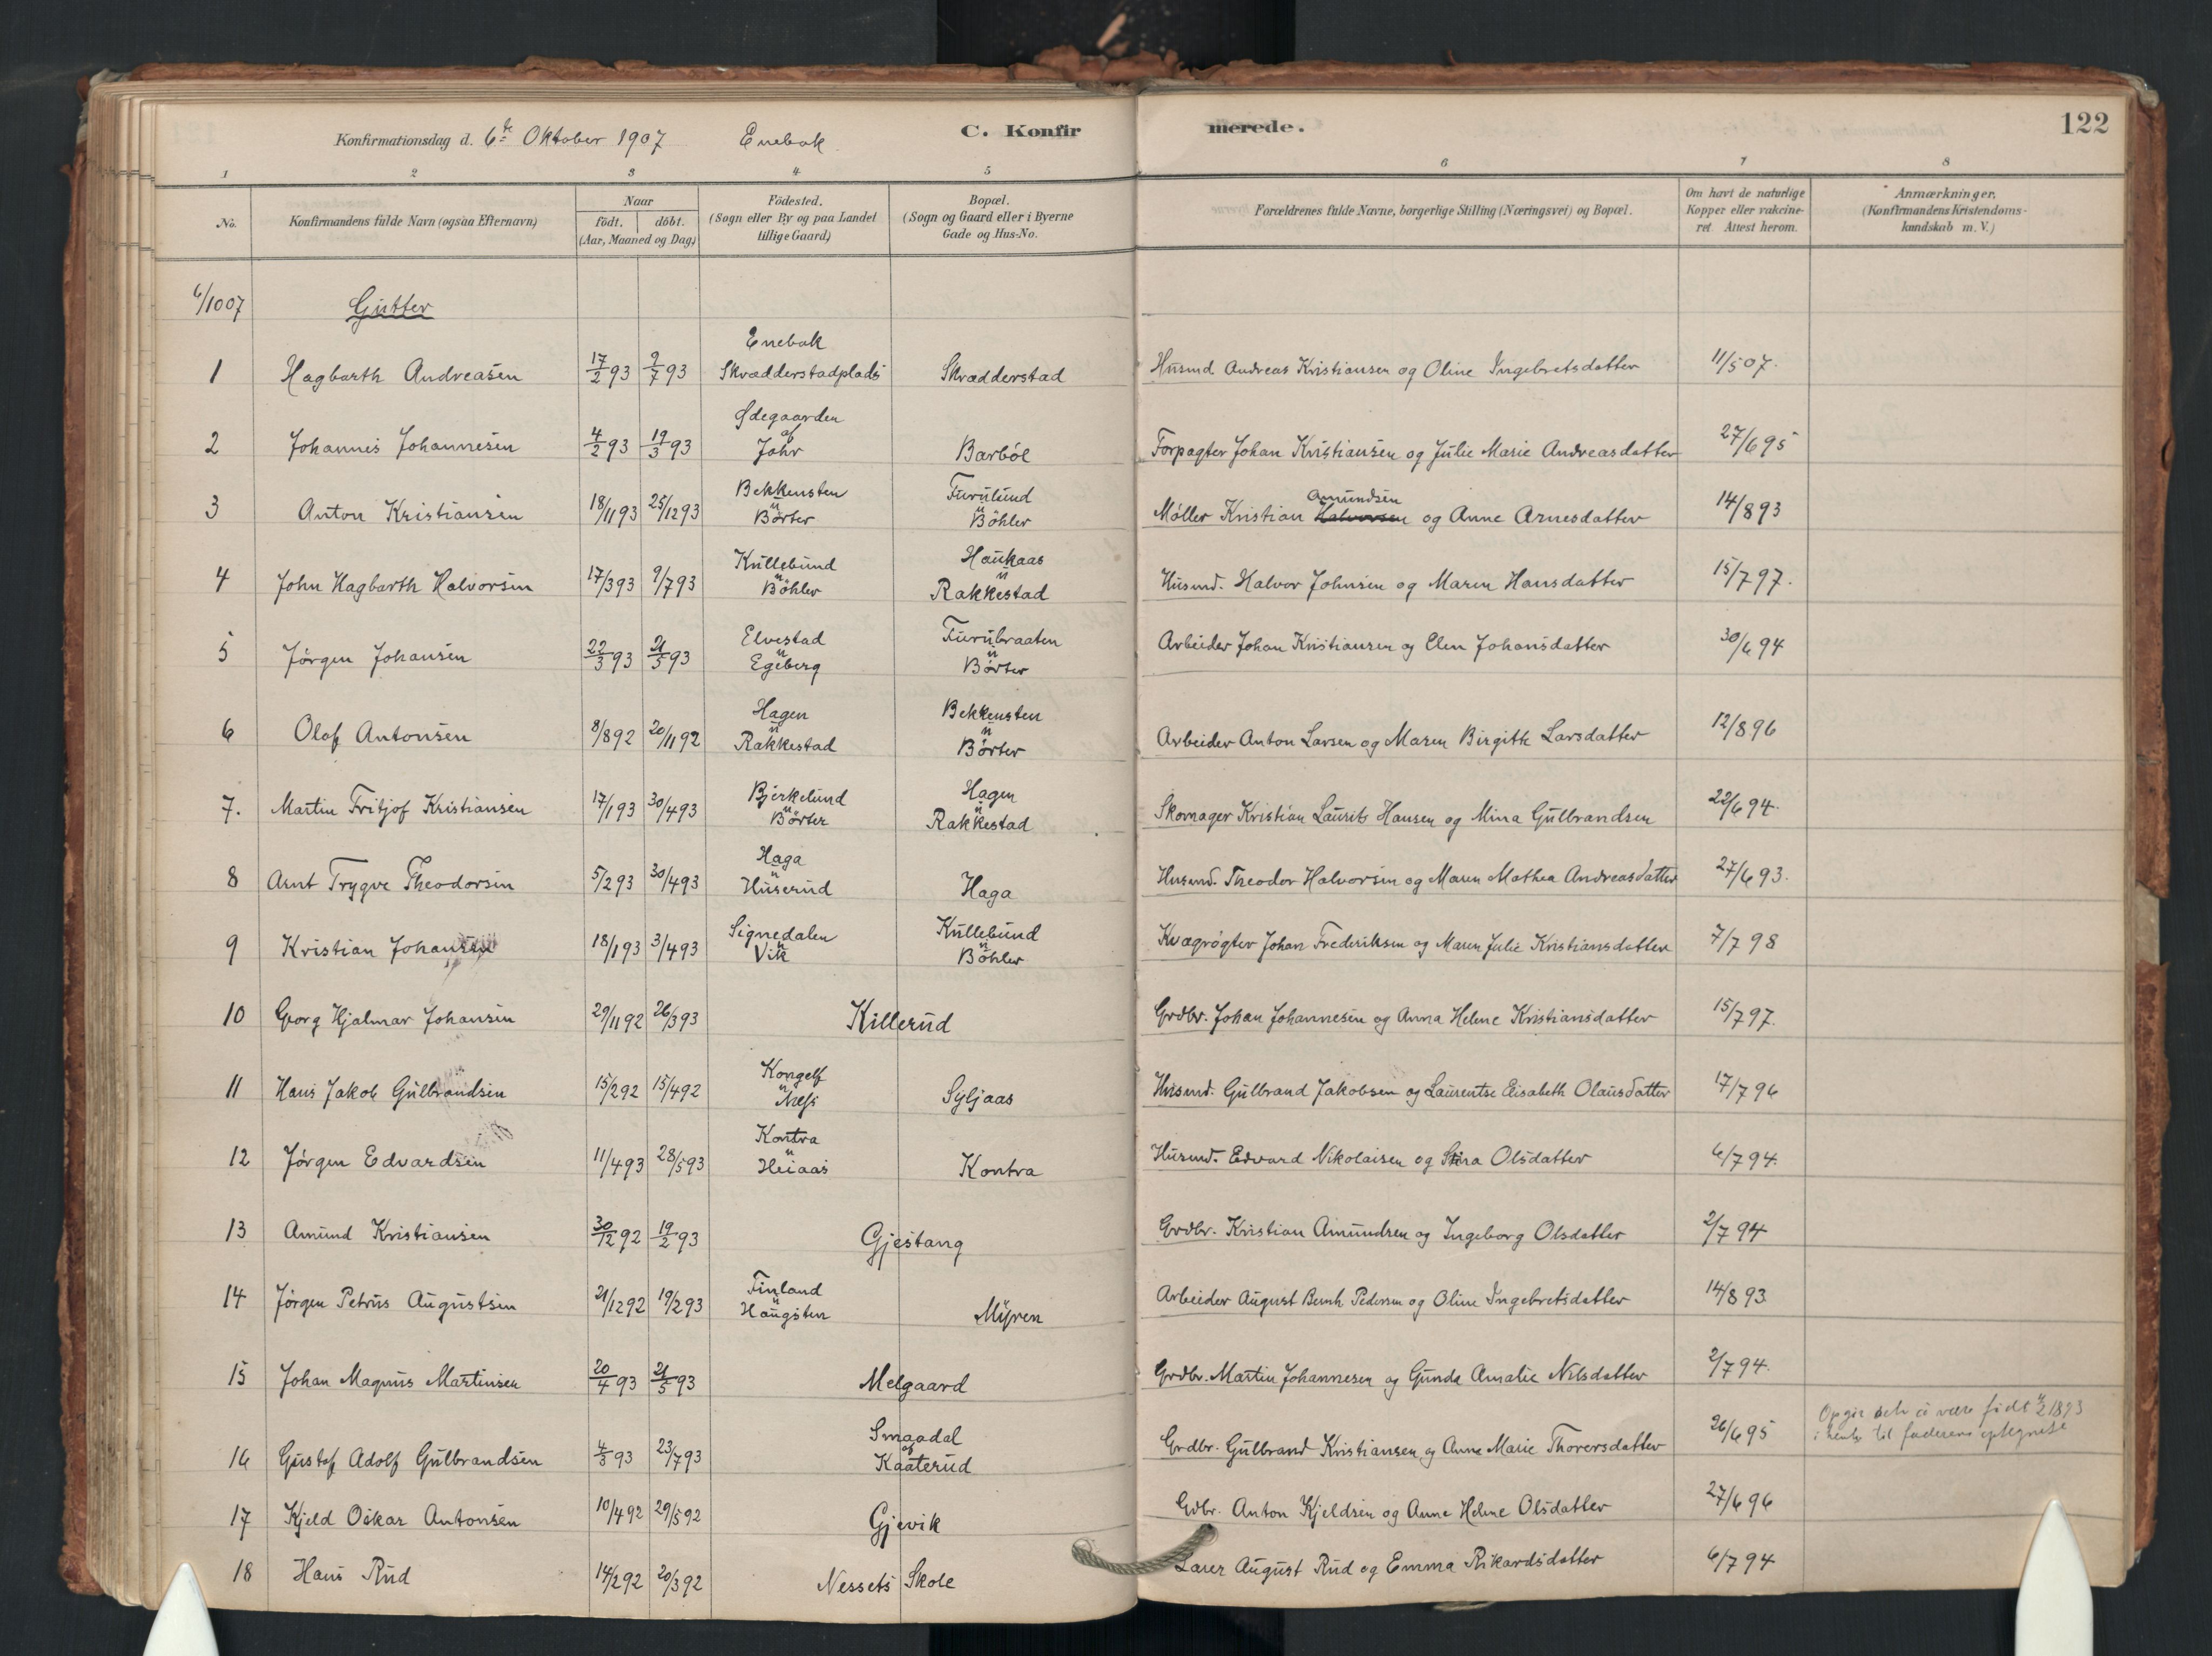 Konfirmationsdag d. 6te Oktober 1907 Enebak C. Konfirmerede. 122
1 2 3 4 5 6 7 8
No. Konfirmandens fulde Navn (ogsaa Efternavn) Naar födt. döbt. (Aar, Maaned og Dag) Födested. (Sogn eller By og paa Landet tillige Gaard) Bopæl. (Sogn og Gaard eller i Byerne Gade og Hus-No. Forældrenes fulde Navne, borgerlige Stilling (Næringsvei) og Bopæl. Om havt de naturlige Kopper eller vakcineret Attest herom. Anmærkninger, (Konfirmandens Kristendomskundskab m. V.)
6/1007 Gutter
1 Hagbarth Andreasen 17/2 93 9/7 93 Enebak Skrædderstadplads Skrædderstad Husmd Andreas Kristiansen og Oline Ingebretsdatter 11/5 07.
2 Johannes Johannesen 4/2 93 19/3 93 Ødegaarden af Johr Barböl Forpagter Johan Kristiansen og Julie Marie Andreasdatter 27/6 95
3 Anton Kristiansen 18/11 93 25/12 93 Bekkensten u Börter Furulund u Böhler Møller Kristian Halvorsen Amundsen og Anne Arnesdatter 14/8 93
4 John Hagbarth Halvorsen 17/3 93 9/7 93 Kullebund u Böhler Haukaas u Rakkestad Husmd. Halvor Johnsen og Maren Hansdatter 15/7 97.
5 Jörgen Johansen 22/3 93 21/5 93 Elvestad u Egeberg Furubraaten u Börter Arbeider Johan Kristiansen og Elen Johansdatter 30/6 94
6 Olof Antonsen 8/8 92 20/11 92 Hagen u Rakkestad Bekkensten u Börter Arbeider Anton Larsen og Maren Birgith Larsdatter 12/8 96
7. Martin Fritjof Kristiansen 17/1 93 30/4 93 Bjerkelund u Börter Hagen u Rakkestad Skomager Kristian Laurits Hansen og Mina Gulbrandsen 22/6 94.
8 Arnt Trygve Theodorsen 5/2 93 30/4 93 Haga u Huserud Haga Husmd. Theodor Halvorsen og Maren Mathea Andreasdatter 27/6 93.
9 Kristian Johansen 18/1 93 3/4 93 Signedalen u Vik Kullebund u Böhler Kvægrögter Johan Frederiksen og Maren Julie Kristiansdatter 7/7 98
10 Georg Hjalmar Johansen 29/11 92 26/3 93 Killerud Grdbr. Johan Johannesen og Anna Helene Kristiansdatter 15/7 97.
11 Hans Jakob Gulbrandsen 15/2 92 15/4 92 Kongelf u Næss Syljaas Husmd. Gulbrand Jakobsen og Laurentse Elisabeth Olausdatter 17/7 96
12 Jörgen Edvardsen 11/4 93 28/5 93 Kontra u Heiaas Kontra Husmd. Edvard Nikolaisen og Stina Olsdatter 6/7 94.
13 Amund Kristiansen 30/12 92 19/2 93 Gjestang Grdbr. Kristian Amundsen og Ingeborg Olsdatter 2/7 94
14 Jörgen Petrus Augustsen 21/12 92 19/2 93 Finland u Haugsten Myren Arbeider August Bernh. Pedersen og Oline Ingebretsdatter 14/8 93
15 Johan Magnus Martinsen 20/4 93 21/5 93 Melgaard Grdbr. Martin Johannesen og Gunda Amalie Nilsdatter 2/7 94.
16 Gustaf Adolf Gulbrandsen 4/3 93 23/7 93 Smaadal af Kaaterud Grdbr. Gulbrand Kristiansen og Anne Marie Thorersdatter 26/6 95 være födt 1893 til faderens optegnelse
17 Kjeld Oskar Antonsen 10/4 92 29/5 92 Gjevik Gdbr. Anton Kjeldsen og Anne Helene Olsdatter 27/6 96
18 Hans Rud 14/2 92 20/3 92 Nessets Skole Lærer August Rud og Emma Rikardsdatter 6/7 94